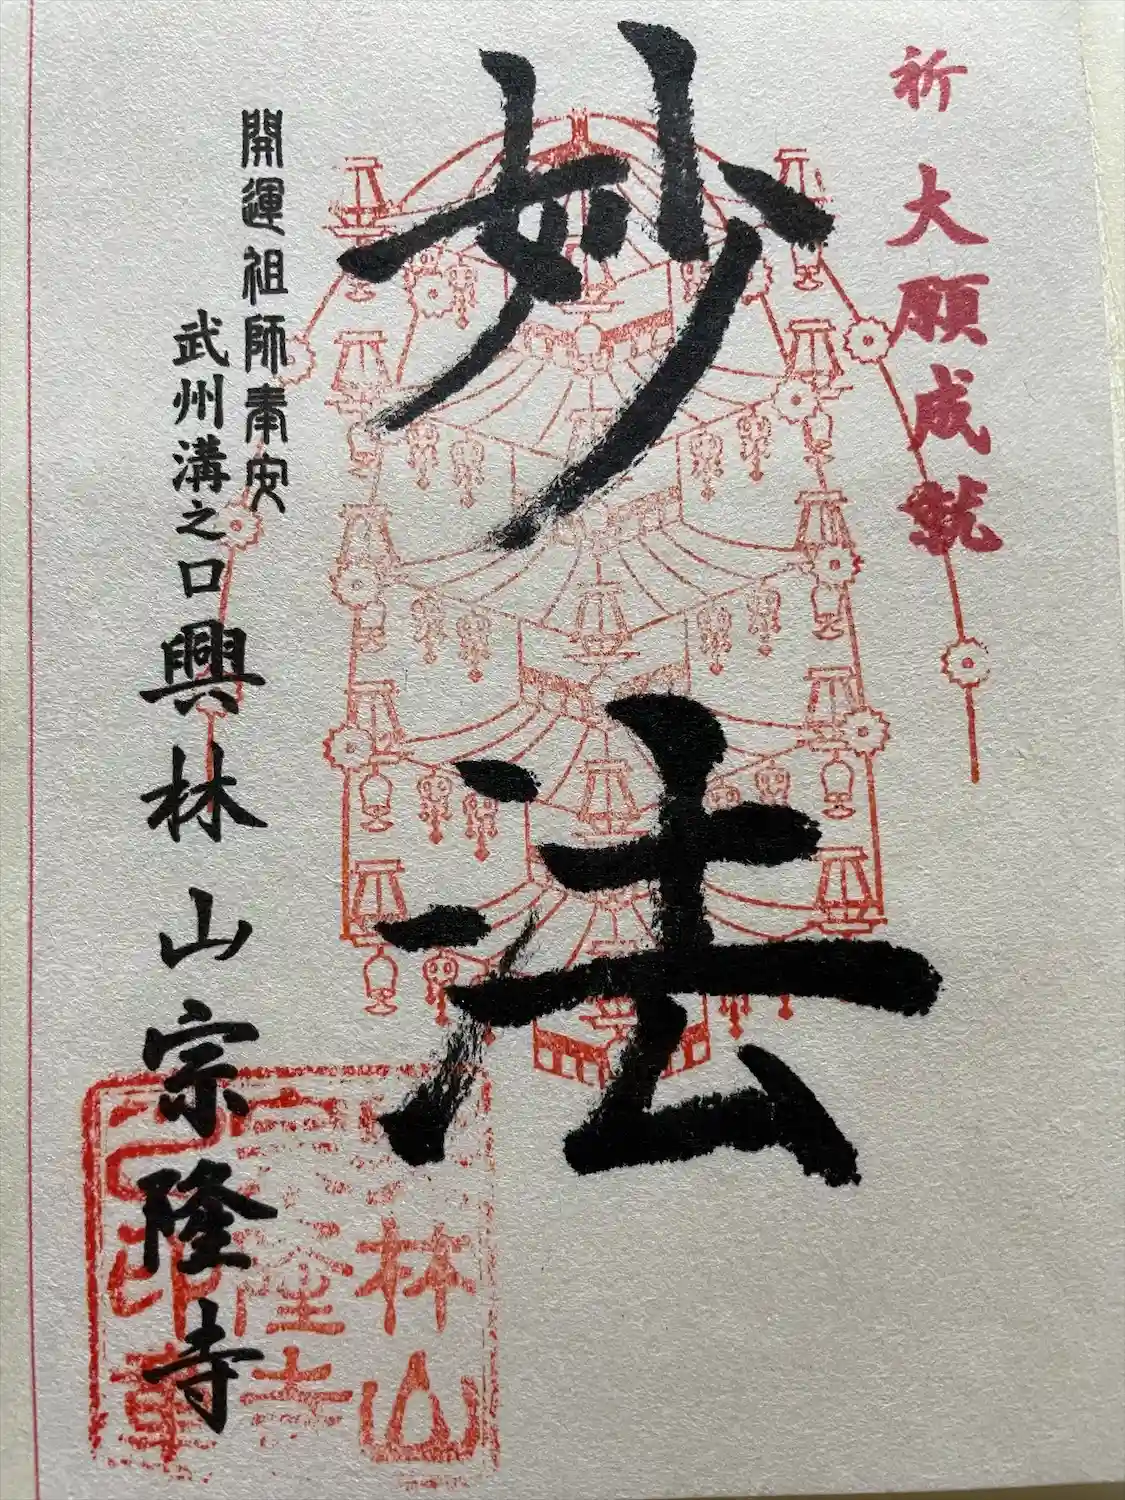 祈 大願成就
妙法
開運祖師奉安
武州溝之口 興林山 宗隆寺
林山
隆寺
印章